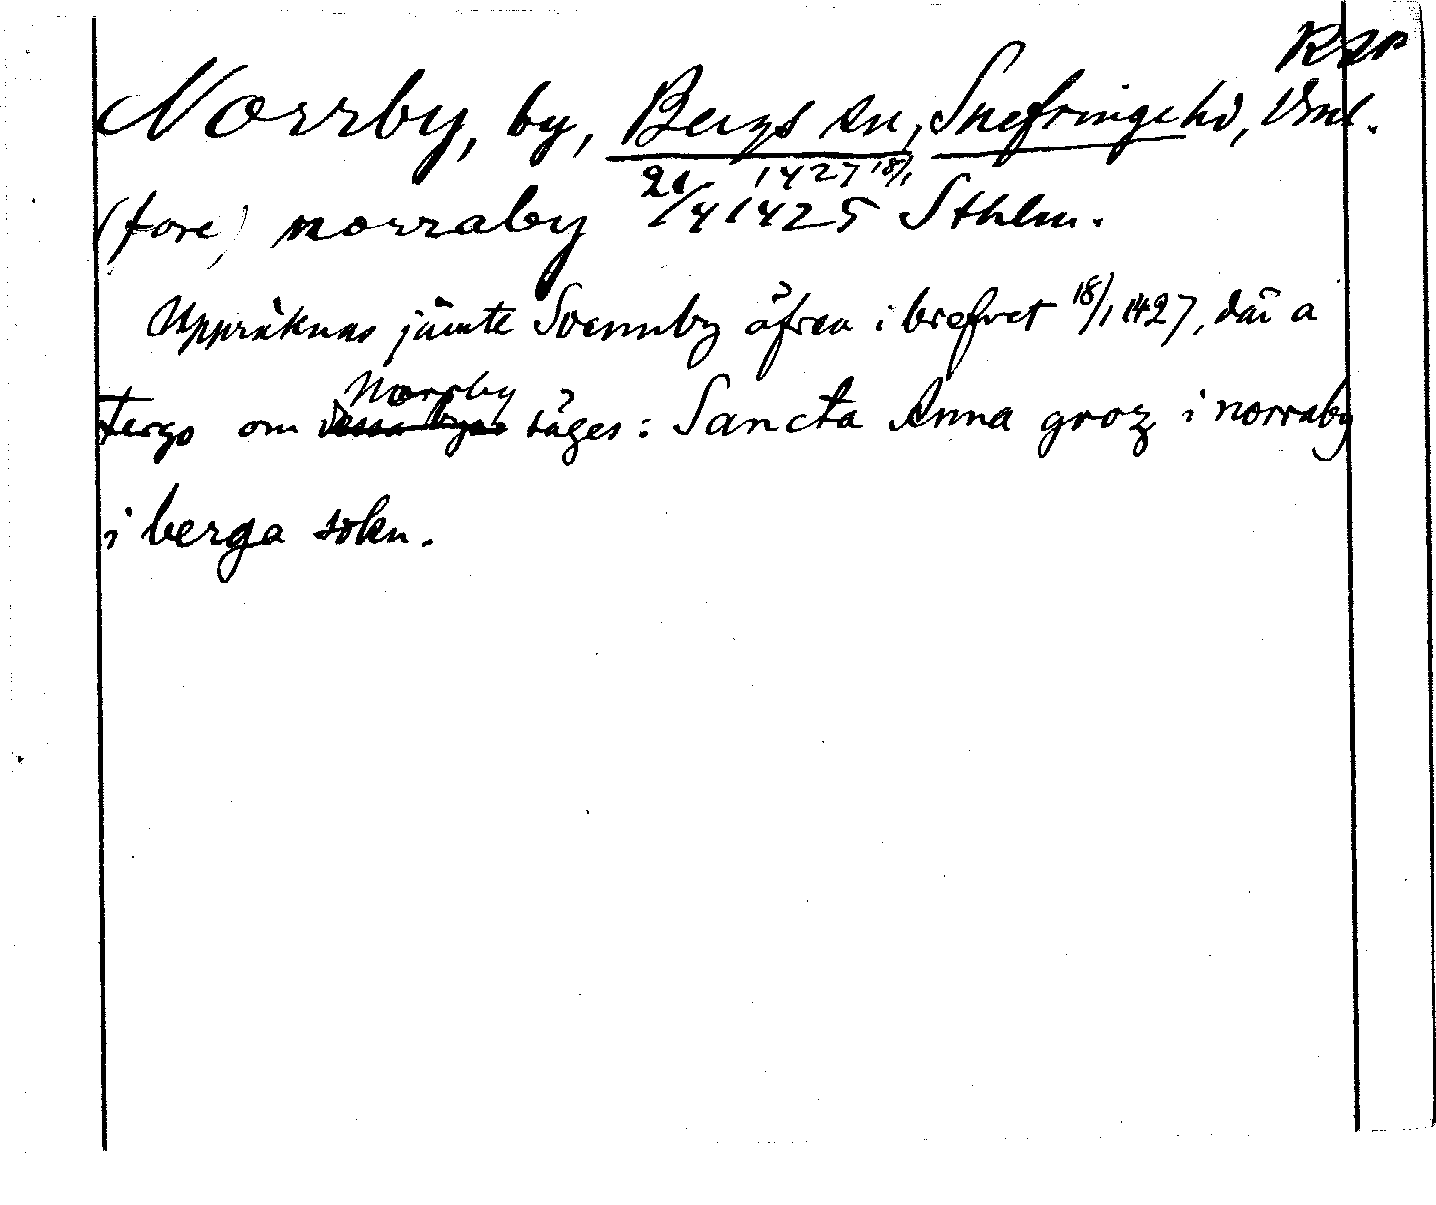 RAP
Norrby, by, Bergs sn, Snefringe hd, Vml.
1427 18/1
(fore) norraby 21/4 1425 Sthlm.
Uppräknas jämte Svennby äfven i brefvet 18/1 1427, där a
Norrby
tergo om dessa byar säges: Sancta Anna groz i norraby
i berga sokn.